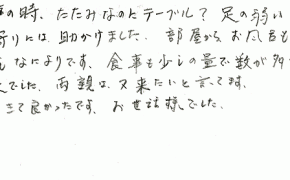 の時、たたみなのにテーブル？足の弱い
には、助かりました。部屋からお風呂も
なによりです。食事も少しの量で数が多
でした。両親は又来たいと言ってます。
きて良かったです。お世話様でした。